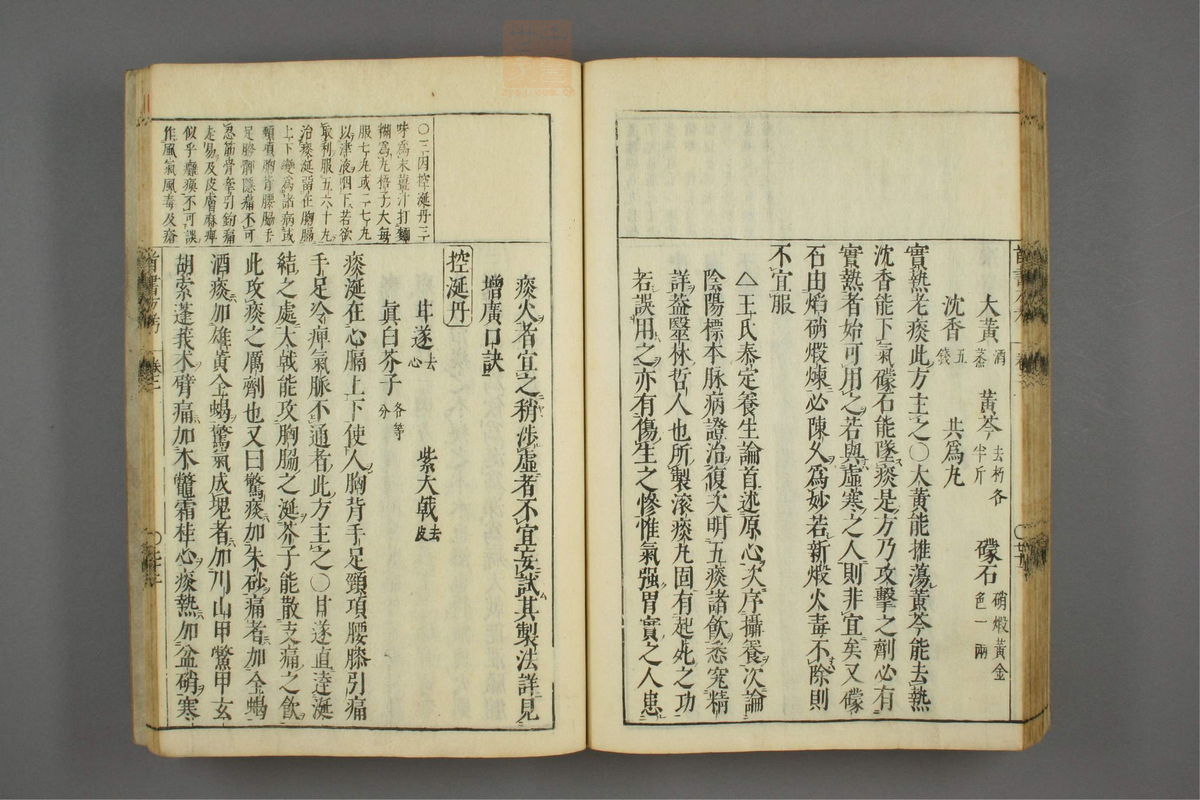 大黃酒蒸 黃芩去朽各半斤 礞石硝煅黃金色一兩
沈香五錢 共爲丸
實熱老痰此方主之○大黃能推蕩黃芩能去熱
沈香能下氣礞石能墜痰是方乃攻擊之劑必有
實熱者始可用之若與虛寒之人則非宜矣又礞
石由焰硝煅煉必陳久爲妙若新煅火毒不除則
不宜服
△王氏泰定養生論首述原心次序攝養次論
陰陽標本脉病證治復次明五痰諸飲悉究精
詳蓋毉林哲人也所製滚痰丸固有起死之功
若誤用之亦有傷生之慘惟氣强胃實之人患
痰火者宜之稍涉虛者不宜妄試其製法詳見
增廣口訣
控涎丹
甘遂去心 紫大戟去皮
眞白芥子各等分
痰涎在心膈上下使人胸背手足頸項腰膝引痛
手足冷痺氣脉不通者此方主之○甘遂直達涎
結之處大戟能攻胸脇之涎芥子能散支痛之飲
此攻痰之厲劑也又曰驚痰加朱砂痛者加全蝎
酒痰加雄黃全蝎驚氣成塊者加川山甲鱉甲玄
胡索蓬莪朮臂痛加木鼈霜桂心痰熱加盆硝寒
○三因控涎丹三
味爲末薑汁打麵
糊爲丸梧子大每
服七丸或二七丸
以津液咽下若欲
取利服五六十丸
治痰涎留在胸膈
上下變爲諸病或
頸項胸背腰脇手
足胯髀隱痛不可
忍筋骨牽引鈎痛
走易及皮膚麻痺
似乎癱瘓不可誤
作風氣風毒及瘡